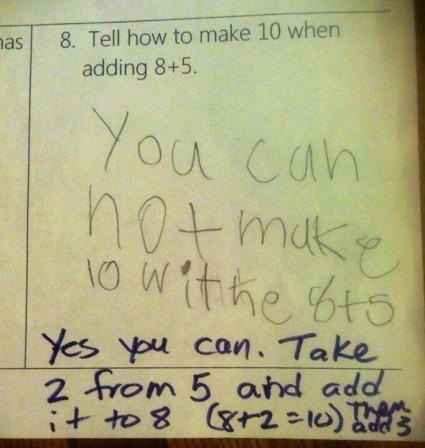 has
8. Tell how to make 10 when
adding 8+5.
You can
not make
10 withhe 8+5
Yes you can. Take
2 from 5 and add
it to 8 (8+2=10) Them
add 3